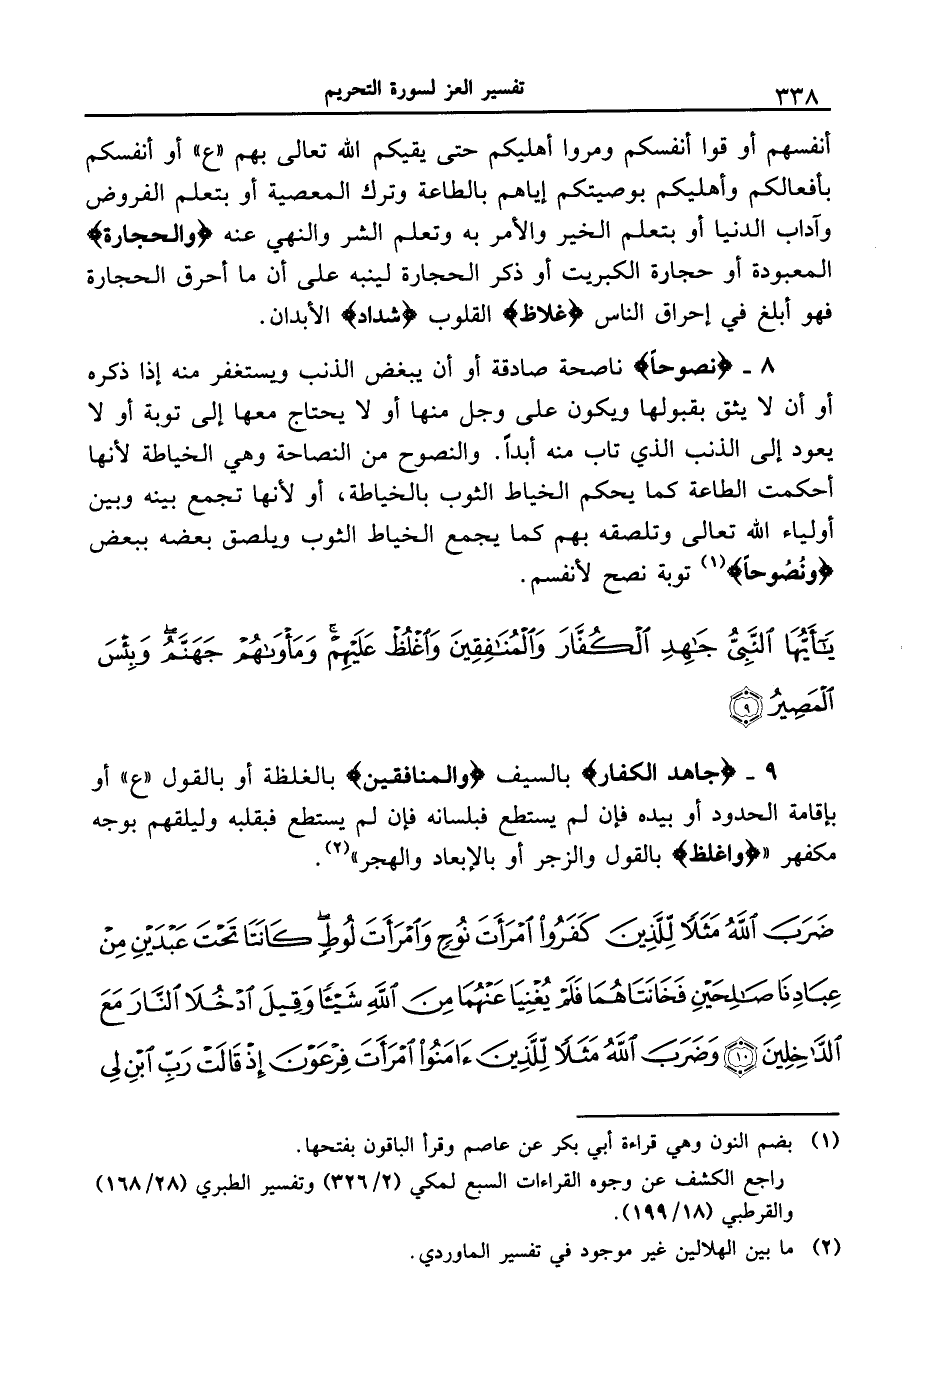 ٣٣٨
تفسير العز لسورة التحريم
أنفسهم أو قوا أنفسكم ومروا أهليكم حتى يقيكم الله تعالى بهم «ع» أو أنفسكم
بأفعالكم وأهليكم بوصيتكم إياهم بالطاعة وترك المعصية أو بتعلم الفروض
وآداب الدنيا أو بتعلم الخير والأمر به وتعلم الشر والنهي عنه ﴿والحجارة﴾
المعبودة أو حجارة الكبريت أو ذكر الحجارة لينبه على أن ما أحرق الحجارة
فهو أبلغ في إحراق الناس ﴿غلاظ﴾ القلوب ﴿شداد﴾ الأبدان.
٨ ـ ﴿نصوحاً﴾ ناصحة صادقة أو أن يبغض الذنب ويستغفر منه إذا ذكره
أو أن لا يثق بقبولها ويكون على وجل منها أو لا يحتاج معها إلى توبة أو لا
يعود إلى الذنب الذي تاب منه أبداً. والنصوح من النصاحة وهي الخياطة لأنها
أحكمت الطاعة كما يحكم الخياط الثوب بالخياطة، أو لأنها تجمع بينه وبين
أولياء الله تعالى وتلصقه بهم كما يجمع الخياط الثوب ويلصق بعضه ببعض
﴿ونُصُوحاً﴾(١) توبة نصح لأنفسم.
يَـٰٓأَيُّهَا ٱلنَّبِىُّ جَـٰهِدِ ٱلْكُفَّارَ وَٱلْمُنَـٰفِقِينَ وَٱغْلُظْ عَلَيْهِمْ ۚ وَمَأْوَىٰهُمْ جَهَنَّمُ ۖ وَبِئْسَ
ٱلْمَصِيرُ ٩
٩ ـ ﴿جاهد الكفار﴾ بالسيف ﴿والمنافقين﴾ بالغلظة أو بالقول «ع» أو
بإقامة الحدود أو بيده فإن لم يستطع فبلسانه فإن لم يستطع فبقلبه وليلقهم بوجه
مكفهر «﴿واغلظ﴾ بالقول والزجر أو بالإبعاد والهجر»(٢).
ضَرَبَ ٱللَّهُ مَثَلًا لِّلَّذِينَ كَفَرُوا۟ ٱمْرَأَتَ نُوحٍ وَٱمْرَأَتَ لُوطٍ ۖ كَانَتَا تَحْتَ عَبْدَيْنِ مِنْ
عِبَادِنَا صَـٰلِحَيْنِ فَخَانَتَاهُمَا فَلَمْ يُغْنِيَا عَنْهُمَا مِنَ ٱللَّهِ شَيْـًٔا وَقِيلَ ٱدْخُلَا ٱلنَّارَ مَعَ
ٱلدَّٰخِلِينَ ١٠ وَضَرَبَ ٱللَّهُ مَثَلًا لِّلَّذِينَ ءَامَنُوا۟ ٱمْرَأَتَ فِرْعَوْنَ إِذْ قَالَتْ رَبِّ ٱبْنِ لِى
(١) بضم النون وهي قراءة أبي بكر عن عاصم وقرأ الباقون بفتحها.
راجع الكشف عن وجوه القراءات السبع لمكي (٣٢٦/٢) وتفسير الطبري (١٦٨/٢٨)
والقرطبي (١٩٩/١٨).
(٢) ما بين الهلالين غير موجود في تفسير الماوردي.